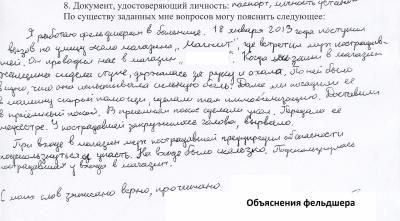 8. Документ, удостоверяющий личность: паспорт, личность установл
По существу заданных мне вопросов могу пояснить следующее:
Я работаю фельдшером в больнице. 18 января 2013 года поступил
вызов на улицу около магазина „Магнит", где встретил муж пострадав-
шей. Он проводил нас в магазин. Когда мы зашли в магазин
женщина сидела на стуле, держалась за руку и охала. По ней было
видно, что она испытывала сильную боль. Далее мы посадили ее
в машину скорой помощи, сделали иммобилизацию. Доставили
в приёмный покой. В приемном покое сделали укол. Передали её
медсестре. У пострадавшей закружилась голова, вырвало.
При входе в магазин муж пострадавшей предупредил об опасности
поскользнуться и упасть. На входе было скользко. Подскользнулась
пострадавшая у входа в магазин.
С моих слов записано верно, прочитано
Объяснения фельдшера